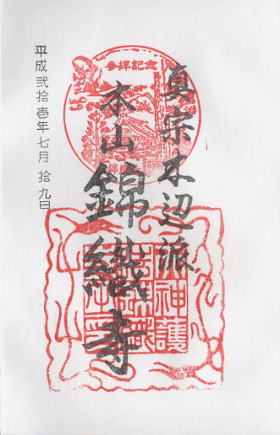 真宗木辺派
本山錦織寺
平成弐拾壱年七月拾九日
参拝記念
神護